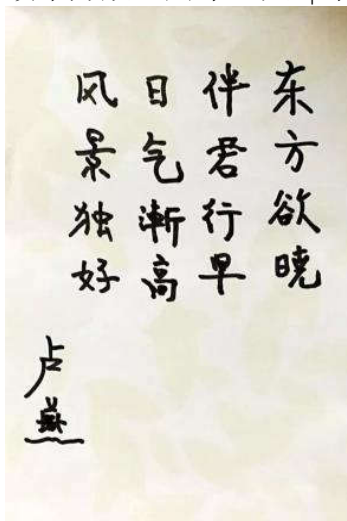 东方欲晓
伴君行早
日气渐高
风景独好
卢燕